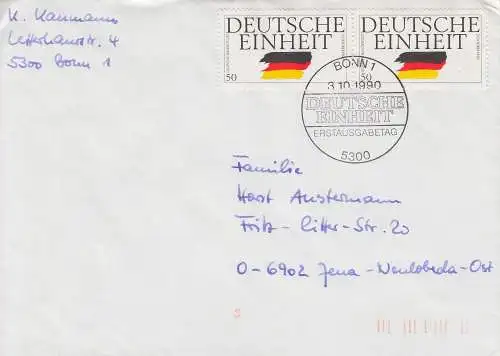 K. Kaumanns
Letterhausstr. 4
5300 Bonn 1
DEUTSCHE EINHEIT
50
DEUTSCHE EINHEIT
50
BONN 1
3.10.1990
DEUTSCHE
EINHEIT
ERSTAUSGABETAG
5300
Familie
Horst Anstermann
Fritz-Ritter-Str. 20
O-6902 Jena-Neulobeda-Ost